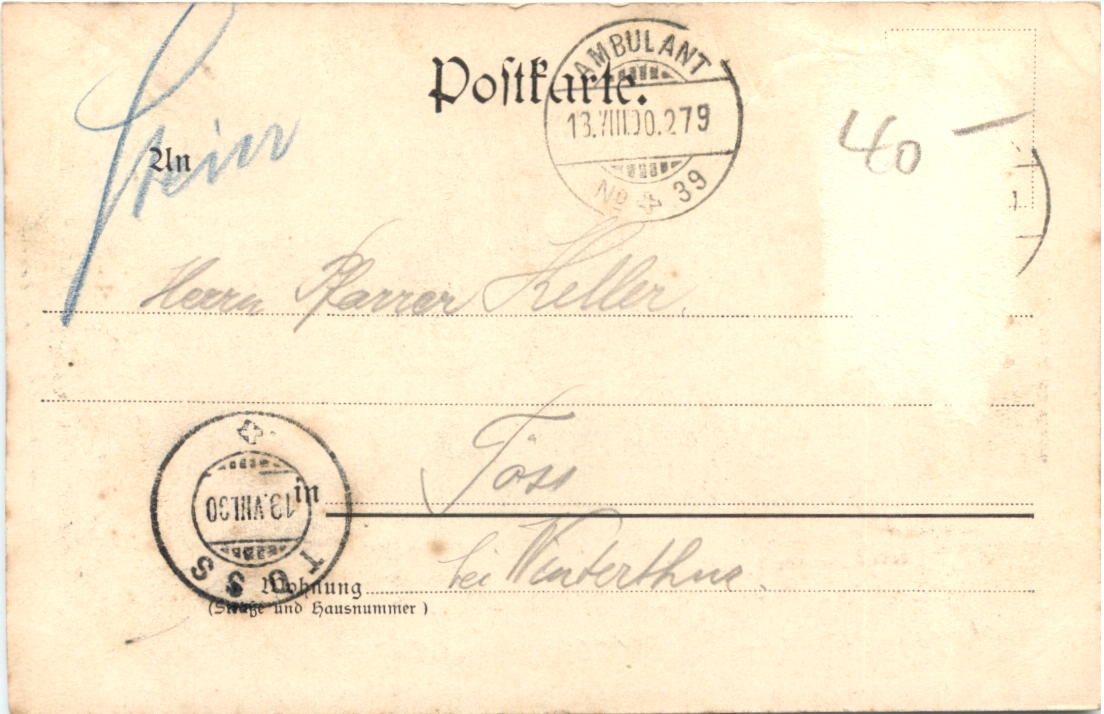 Postkarte.
AMBULANT
13.VIII.00.279
No 39
40 –
An
Stein
Herrn Pfarrer Keller.
in Töss
bei Winterthur.
TÖSS
13.VIII.00
Wohnung
(Straße und Hausnummer)